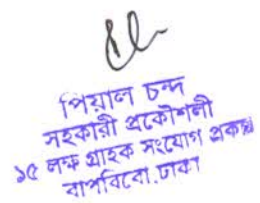 পিয়াল চন্দ
সহকারী প্রকৌশলী
১৫ লক্ষ গ্রাহক সংযোগ প্রকল্প
বাপবিবো, ঢাকা